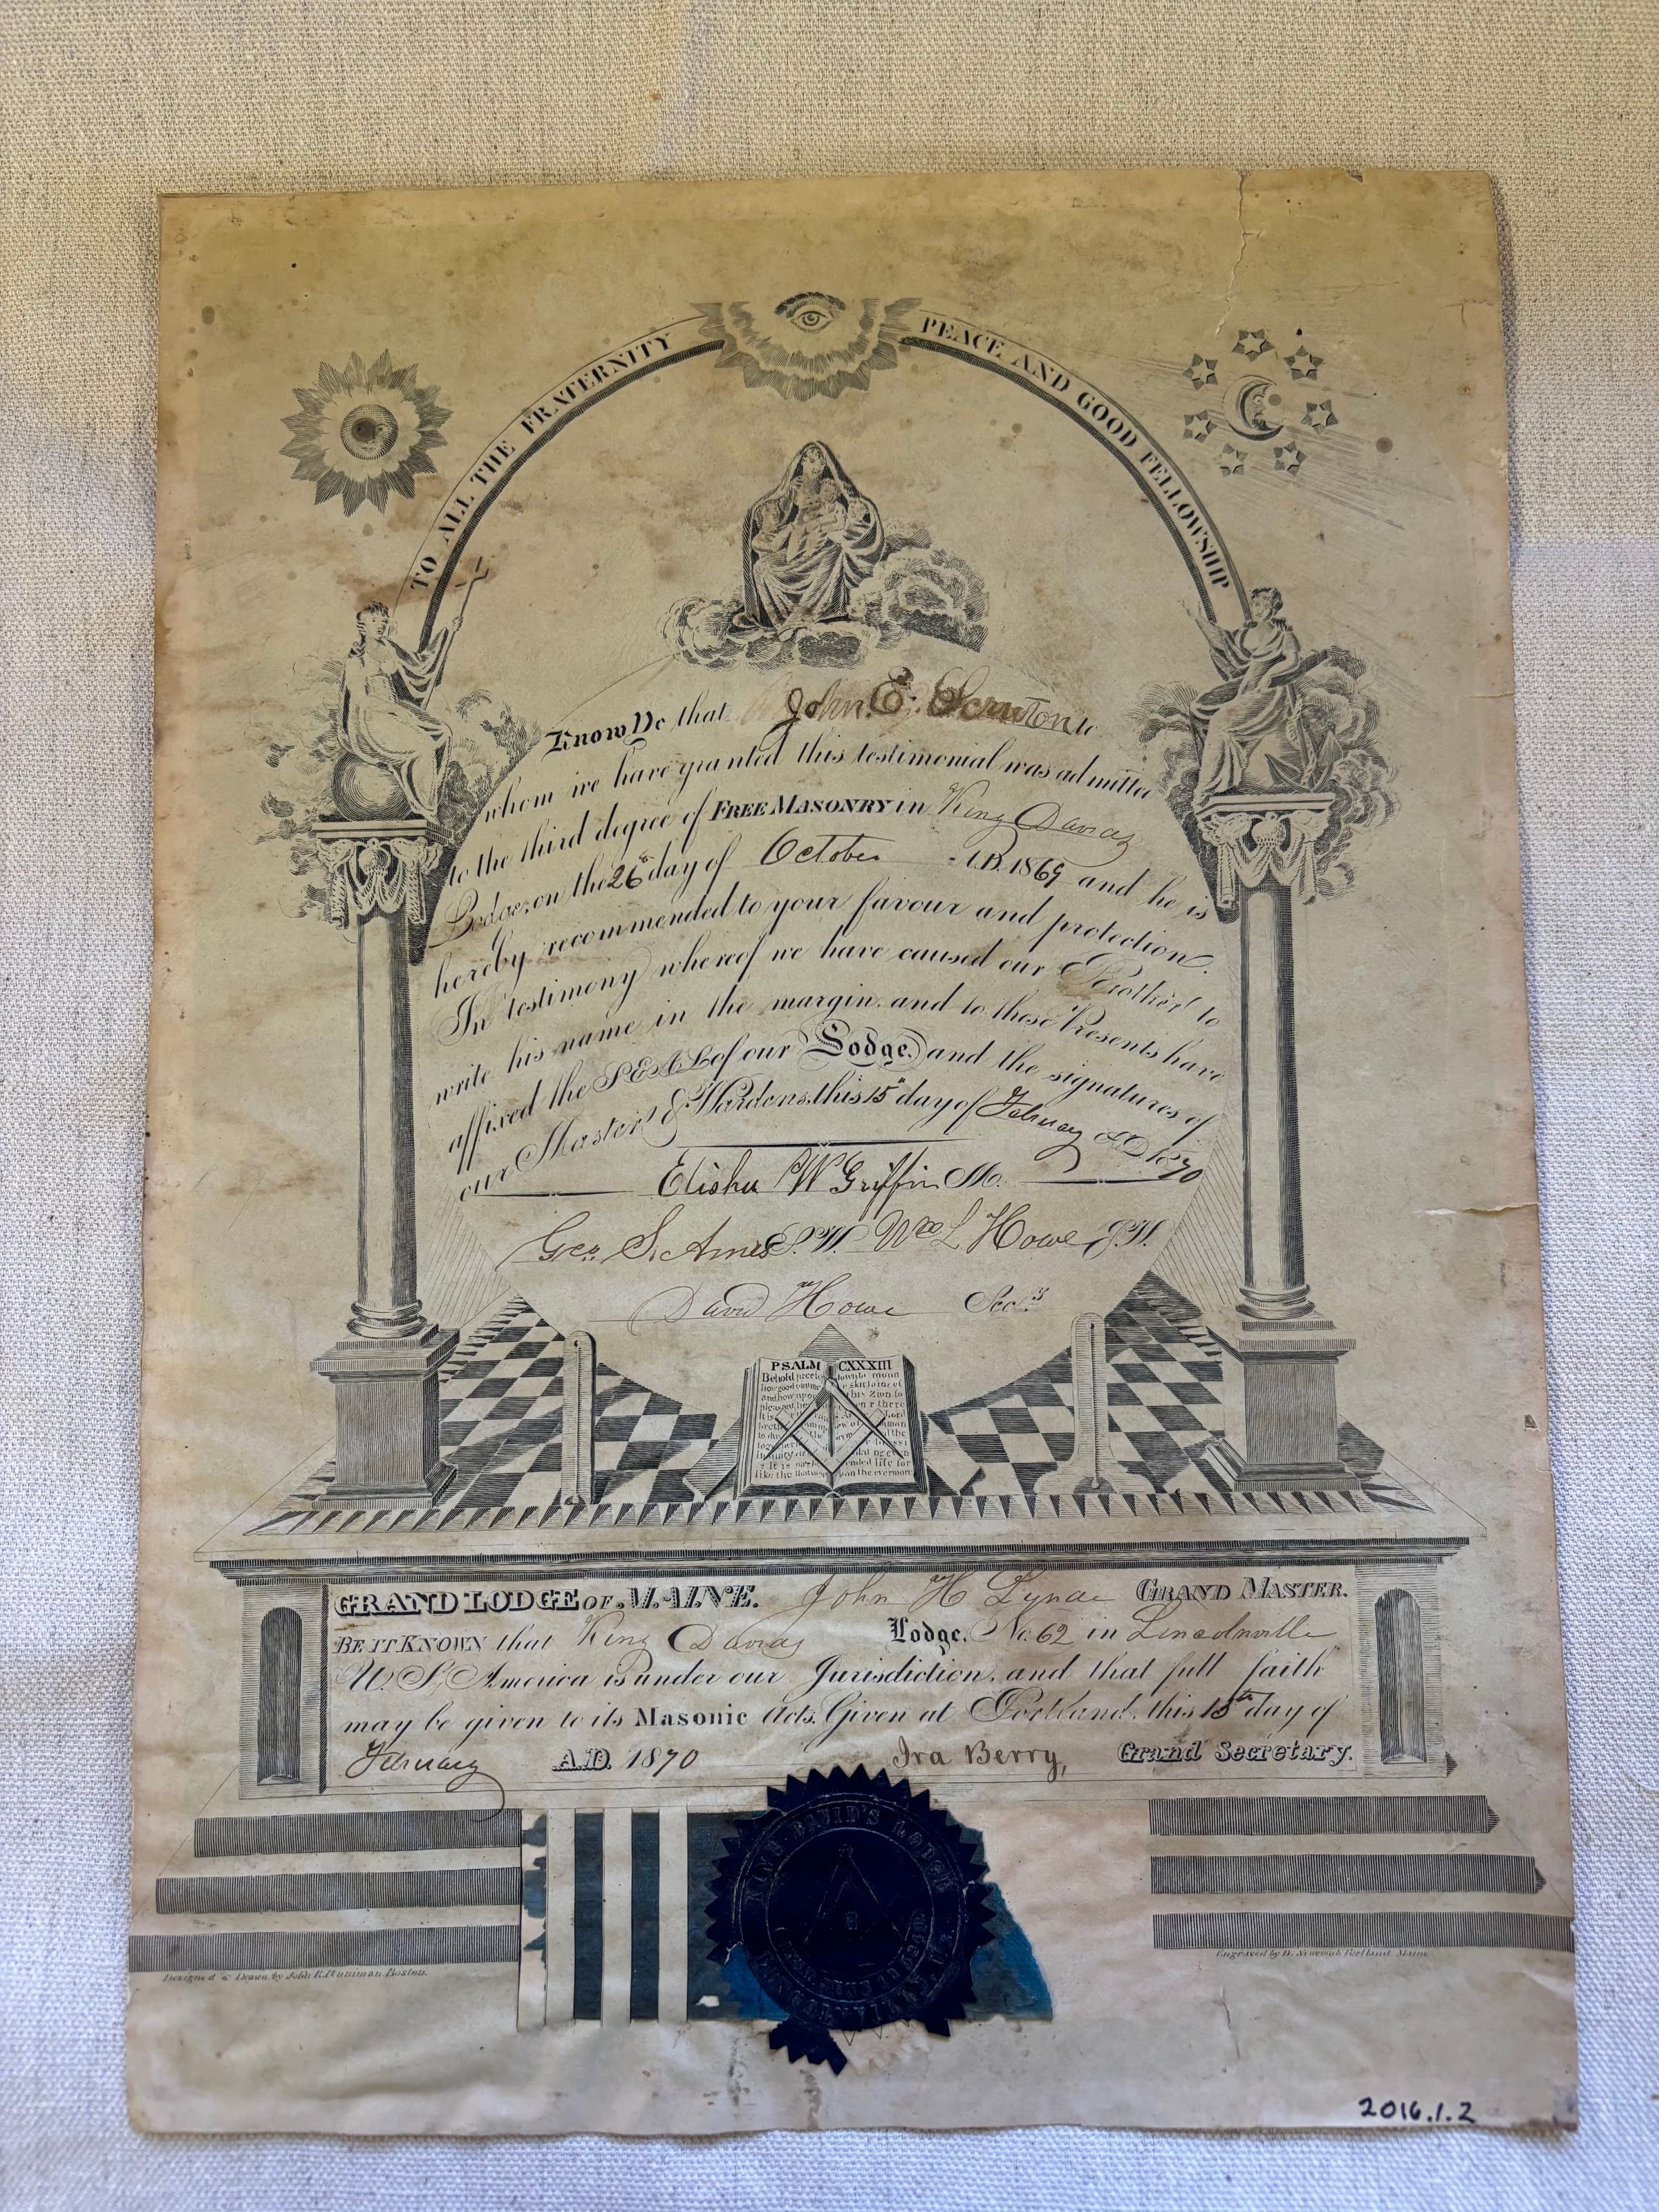 TO ALL THE FRATERNITY
PEACE AND GOOD FELLOWSHIP
Know Ye that John E. to
whom we have granted this testimonial was admitted
to the third degree of FREE MASONRY in King Davids
Lodge, on the 26th day of October A.D. 1869 and he is
hereby recommended to your favour and protection.
In testimony whereof we have caused our Brother to
write his name in the margin, and to these Presents have
affixed the SEAL of our Lodge, and the signatures of
our Master & Wardens, this 15th day of February A.D. 1870
Elisha W Griffin M.
Geo. S. Ames S.W. Wm L Howe J.W.
David Howe Secy
PSALM CXXXIII
GRAND LODGE OF MAINE. John H Lynde GRAND MASTER.
BE IT KNOWN that King Davids Lodge, No. 62 in Lincolnville
U.S. America is under our Jurisdiction, and that full faith
may be given to its Masonic Acts. Given at Portland, this 15th day of
February A.D. 1870 Ira Berry, Grand Secretary.
KING DAVID'S LODGE
Designed & Drawn by John R. Penniman Boston.
Engraved by D. Newcomb Portland Maine
2016.1.2